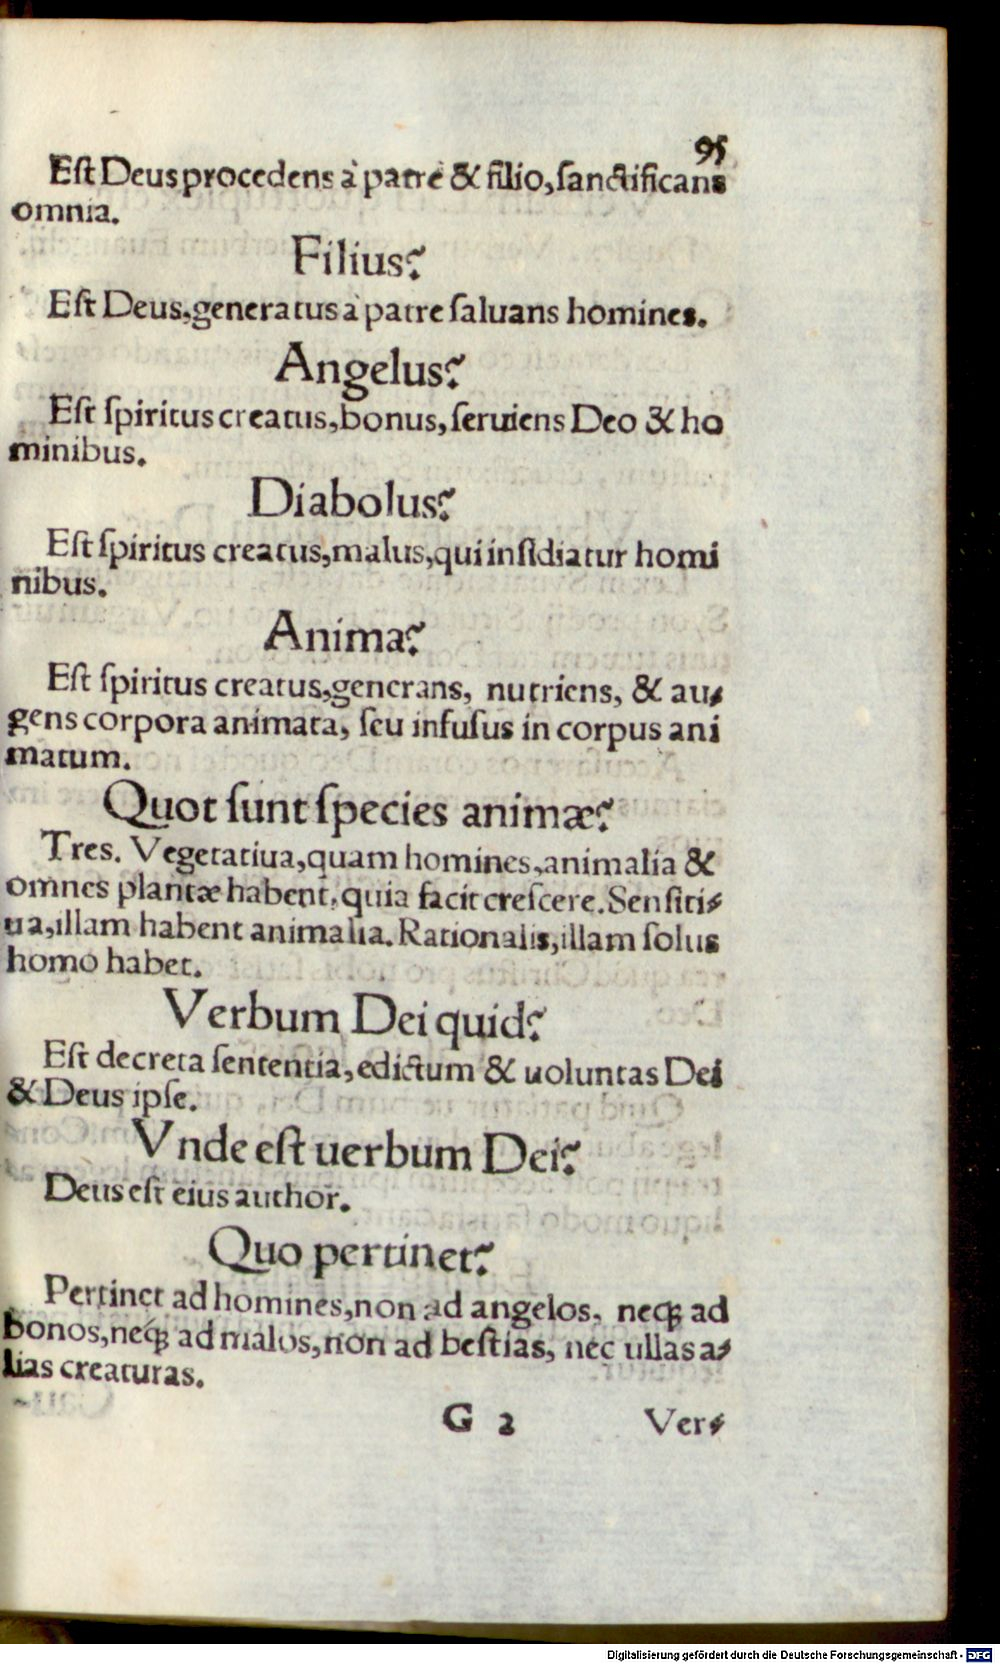 95
Eſt Deus procedens à patre & filio, ſanctificans
omnia.
Filius?
Eſt Deus, generatus à patre ſaluans homines.
Angelus?
Eſt ſpiritus creatus, bonus, ſeruiens Deo & ho
minibus.
Diabolus?
Eſt ſpiritus creatus, malus, qui inſidiatur homi
nibus.
Anima?
Eſt ſpiritus creatus, generans, nutriens, & au⸗
gens corpora animata, ſeu infuſus in corpus ani
matum.
Quot ſunt ſpecies animæ?
Tres. Vegetatiua, quam homines, animalia &
omnes plantæ habent, quia facit creſcere. Senſiti⸗
ua, illam habent animalia. Rationalis, illam ſolus
homo habet.
Verbum Dei quid?
Eſt decreta ſententia, edictum & uoluntas Dei
& Deus ipſe.
Vnde eſt uerbum Dei?
Deus eſt eius author.
Quo pertinet?
Pertinet ad homines, non ad angelos, neqꝫ ad
bonos, neqꝫ ad malos, non ad beſtias, nec ullas a⸗
lias creaturas.
G 2 Ver⸗
Digitalisierung gefördert durch die Deutsche Forschungsgemeinschaft - DFG